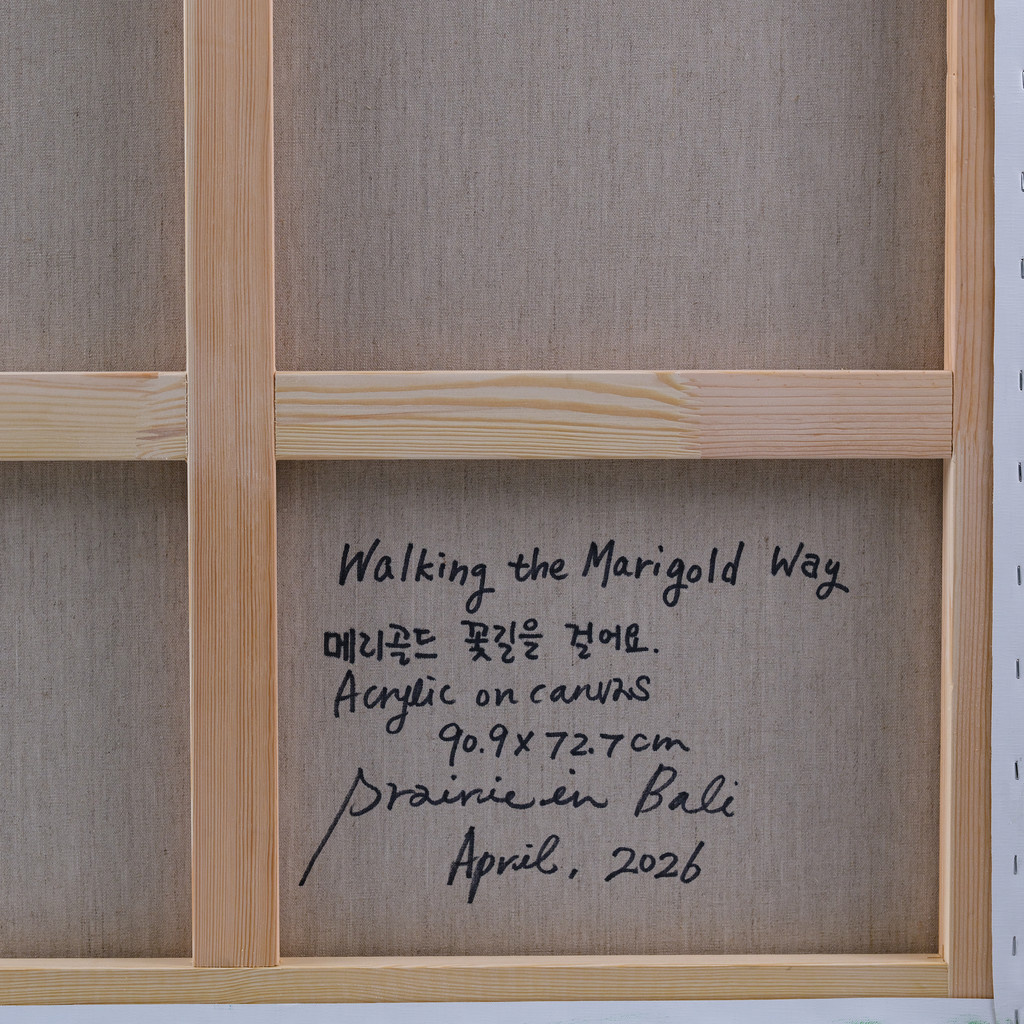 Walking the Marigold Way
메리골드 꽃길을 걸어요.
Acrylic on canvas
90.9 x 72.7 cm
prairie in Bali
April, 2026